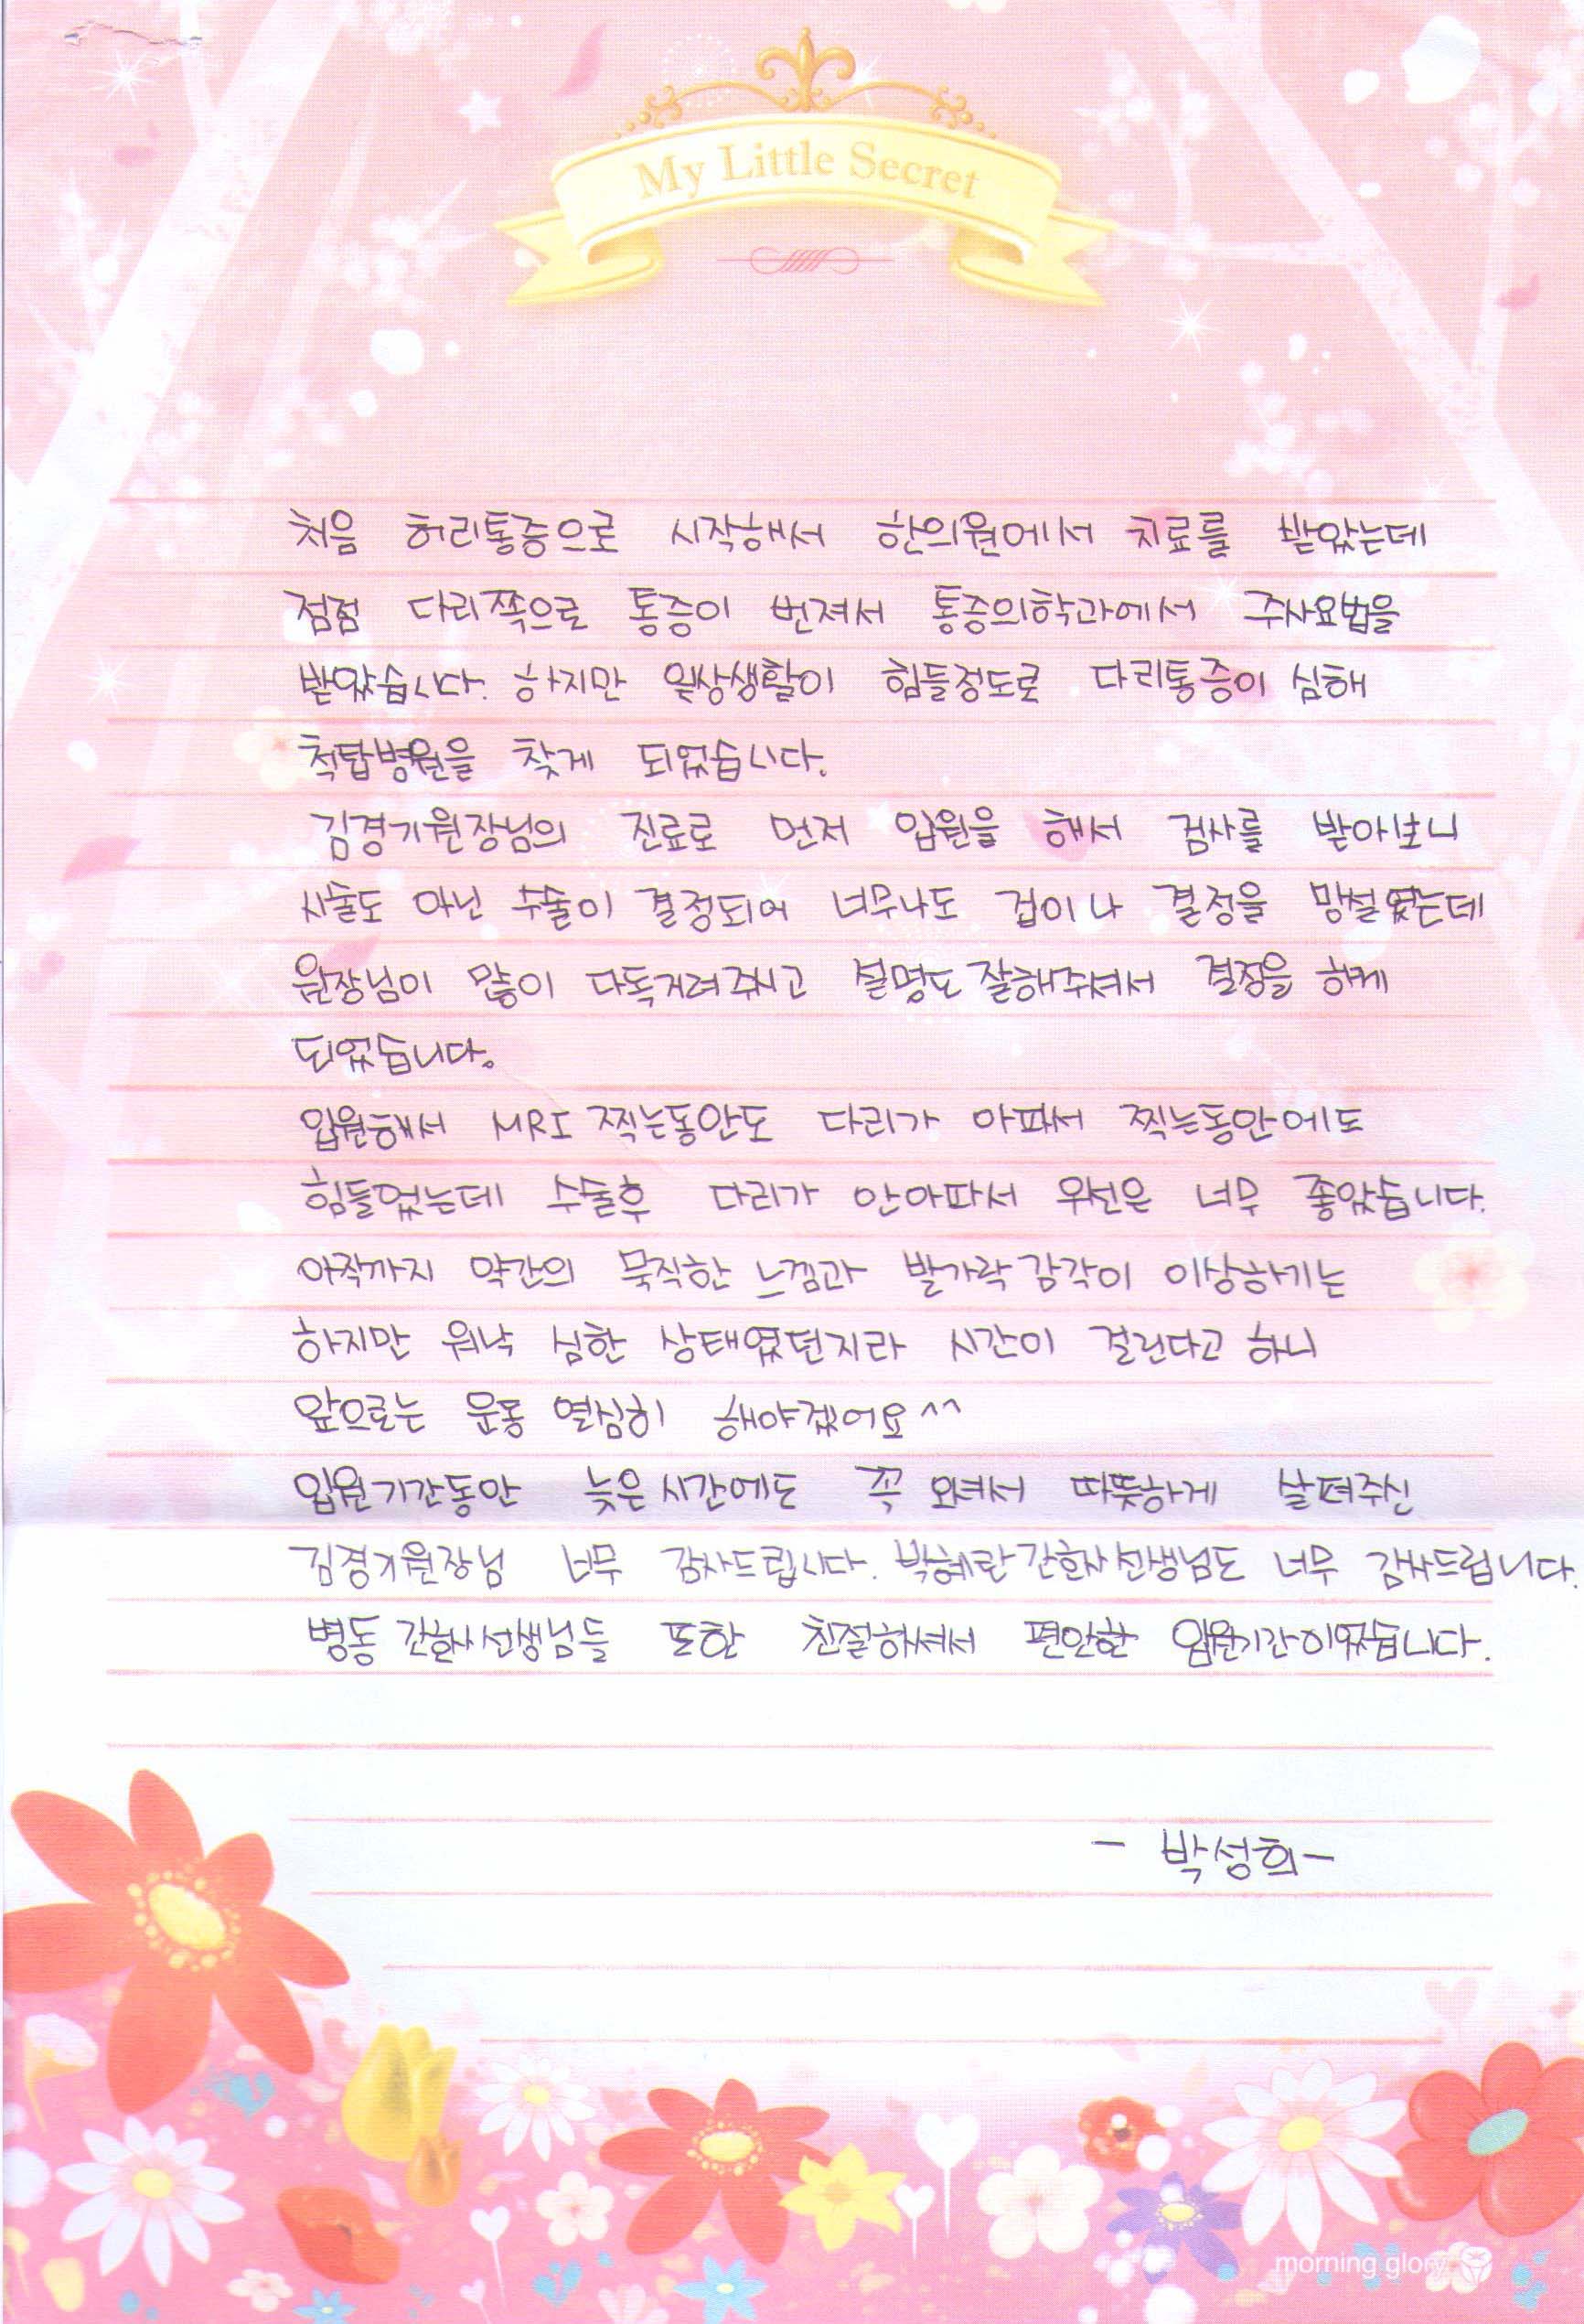 My Little Secret
처음 허리통증으로 시작해서 한의원에서 치료를 받았는데
점점 다리쪽으로 통증이 번져서 통증의학과에서 주사요법을
받았습니다. 하지만 일상생활이 힘들정도로 다리통증이 심해
척탑병원을 찾게 되었습니다.
김경기원장님의 진료로 먼저 입원을 해서 검사를 받아보니
시술도 아닌 수술이 결정되어 너무나도 겁이나 결정을 망설였는데
원장님이 많이 다독거려주시고 설명도 잘해주셔서 결정을 하게
되었습니다.
입원해서 MRI 찍는동안도 다리가 아파서 찍는동안에도
힘들었는데 수술후 다리가 안아파서 우선은 너무 좋았습니다.
아직까지 약간의 묵직한 느낌과 발가락 감각이 이상하기는
하지만 워낙 심한 상태였던지라 시간이 걸린다고 하니
앞으로는 운동 열심히 해야겠어요^^
입원기간동안 늦은 시간에도 꼭 오셔서 따뜻하게 살펴주신
김경기원장님 너무 감사드립니다. 박혜란간호사선생님도 너무 감사드립니다.
병동 간호사선생님들 또한 친절하셔서 편안한 입원기간이였습니다.
- 박성희 -
morning glory